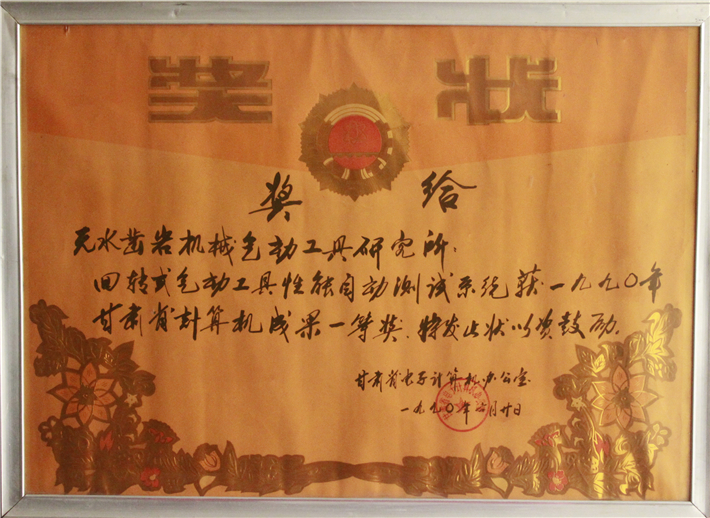 奖状
奖给
天水凿岩机械气动工具研究所：
回转式气动工具性能自动测试系统获一九九〇年
甘肃省计算机成果一等奖，特发此状以资鼓励。
甘肃省电子计算机办公室
一九九〇年六月廿日